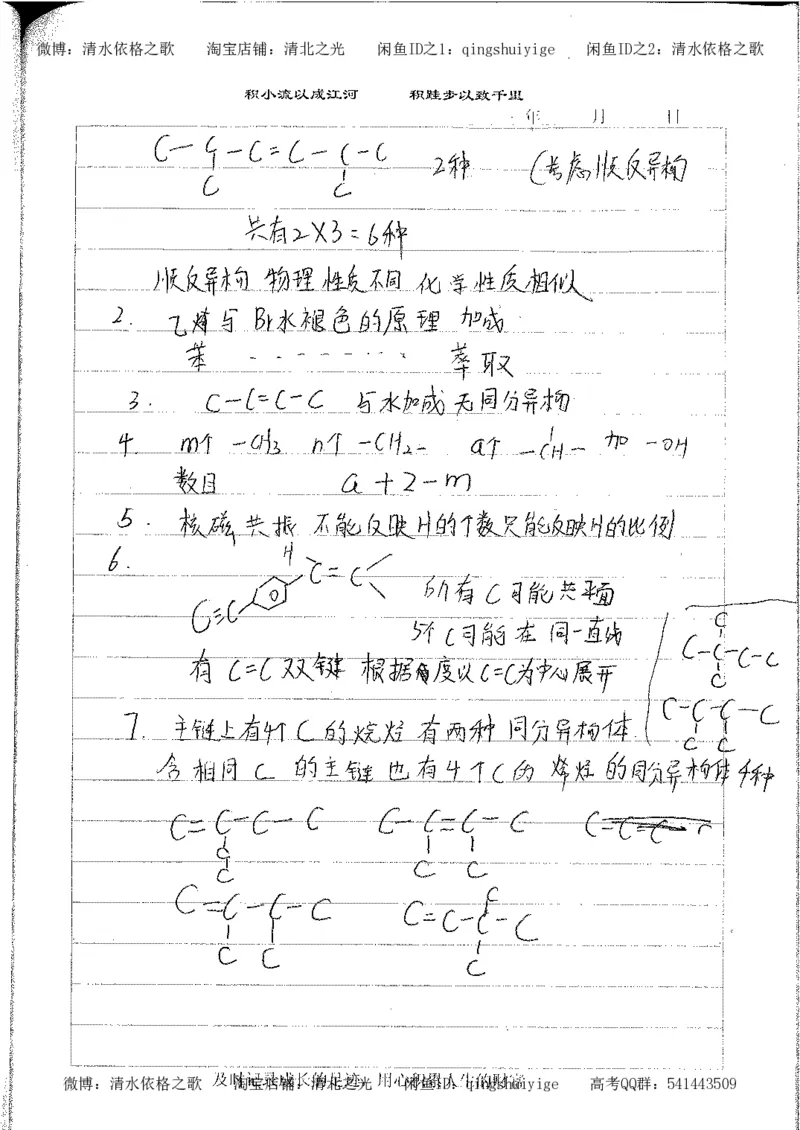 微博：清水依格之歌 淘宝店铺：清北之光 闲鱼ID之1：qingshuiyige 闲鱼ID之2：清水依格之歌
积小流以成江河 积跬步以致千里
年 月 日
C-C-C=C-C-C 2种 (考虑顺反异构
C C
共有2×3=6种
顺反异构 物理性质不同 化学性质相似
2. 乙烯与Br水褪色的原理 加成
苯 - - - - - - - - 萃取
3. C-C=C-C 与水加成无同分异构
4. m个 -CH3 n个 -CH2- a个 -CH- 加 -OH
数目 a+2-m
5. 核磁共振 不能反映H的个数只能反映H的比例
6. H C=C
C≡C 所有C可能共平面
5个C可能在同一直线
有C=C双键 根据角度以C=C为中心展开
C
C-C-C-C
C
C-C-C-C
C C
7. 主链上有4个C的烷烃有两种同分异构体
含相同C的主链也有4个C的烯烃的同分异构体4种
C=C-C-C C-C=C-C
C C C
C
C=C-C-C C=C-C-C
C C C
C
及时记录成长的足迹 用心积累人生的财富
微博：清水依格之歌 淘宝店铺：清北之光 闲鱼ID：qingshuiyige 高考QQ群：541443509